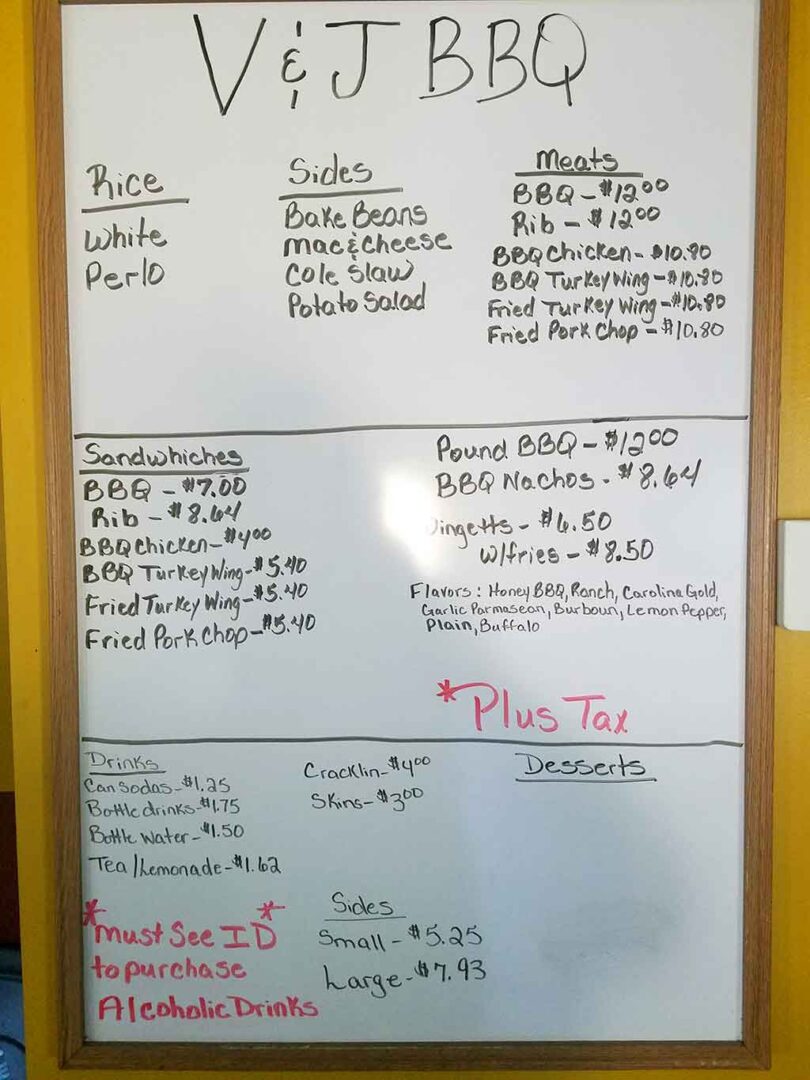 V & J BBQ
Rice
White
Perlo
Sides
Bake Beans
Mac & Cheese
Cole Slaw
Potato Salad
Meats
BBQ - $12.00
Rib - $12.00
BBQ Chicken - $10.80
BBQ Turkey Wing - $10.80
Fried Turkey Wing - $10.80
Fried Pork Chop - $10.80
Sandwhiches
BBQ - $7.00
Rib - $8.64
BBQ Chicken - $4.00
BBQ Turkey Wing - $5.40
Fried Turkey Wing - $5.40
Fried Pork Chop - $5.40
Pound BBQ - $12.00
BBQ Nachos - $8.64
Wingetts - $6.50
w/fries - $8.50
Flavors: Honey BBQ, Ranch, Carolina Gold,
Garlic Parmasean, Burboun, Lemon Pepper,
Plain, Buffalo
*Plus Tax
Drinks
Can Sodas - $1.25
Bottle drinks - $1.75
Bottle Water - $1.50
Tea/Lemonade - $1.62
*Must See ID*
to purchase
Alcoholic Drinks
Cracklin - $4.00
Skins - $3.00
Sides
Small - $5.25
Large - $7.93
Desserts